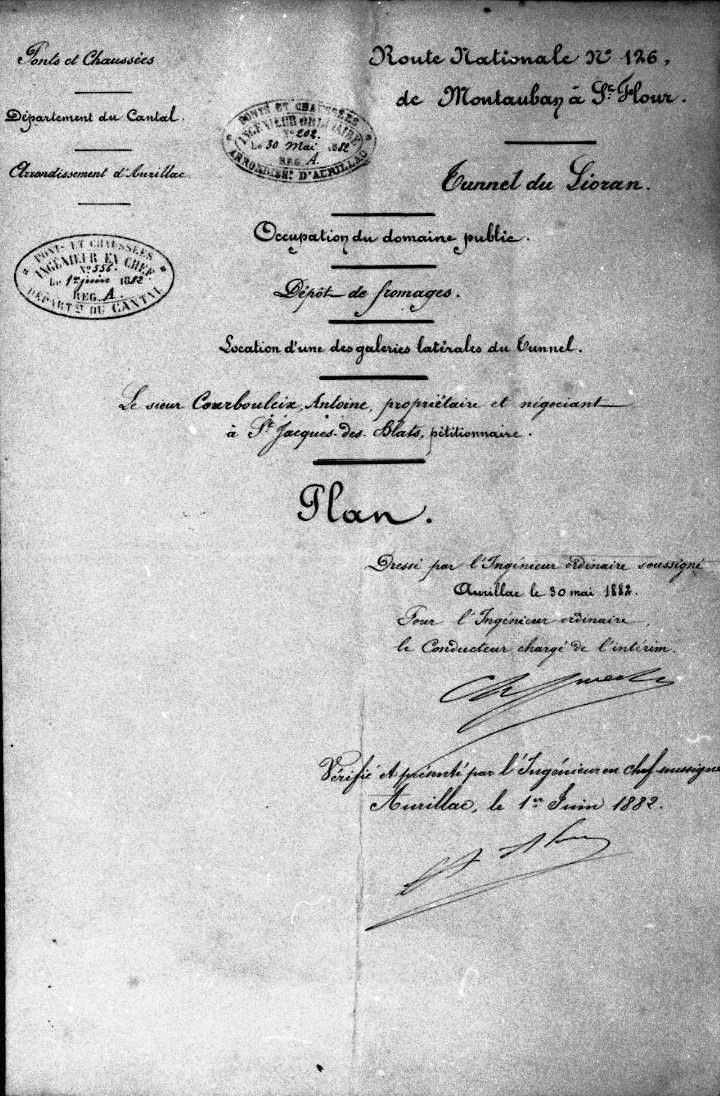 Ponts et Chaussées
Département du Cantal.
Arrondissement d'Aurillac
Route Nationale N° 126,
de Montauban à St Flour.
Tunnel du Lioran.
PONTS ET CHAUSSÉES
INGÉNIEUR ORDINAIRE
N° 202.
Le 30 Mai 1882
REG. A.
ARRONDISSt D'AURILLAC
PONTS ET CHAUSSÉES
INGÉNIEUR EN CHEF
N° 556.
Le 1er juin 1882
REG. A.
DÉPARTt DU CANTAL
Occupation du domaine public.
Dépôt de fromages.
Location d'une des galeries latérales du Tunnel.
Le sieur Courbouleix, Antoine, propriétaire et négociant
à St Jacques-des-Blats, pétitionnaire.
Plan.
Dressé par l'Ingénieur ordinaire soussigné
Aurillac le 30 mai 1882.
Pour l'Ingénieur ordinaire,
le Conducteur chargé de l'intérim.
Vérifié et présenté par l'Ingénieur en chef soussigné
Aurillac, le 1er Juin 1882.